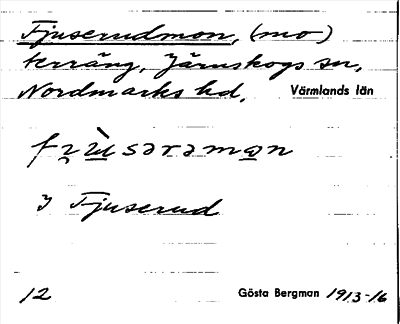 Fjuserudmon, (mo)
terräng, Järnskogs sn,
Nordmarks hd. Värmlands län
i Fjuserud
12 Gösta Bergman 1913-16